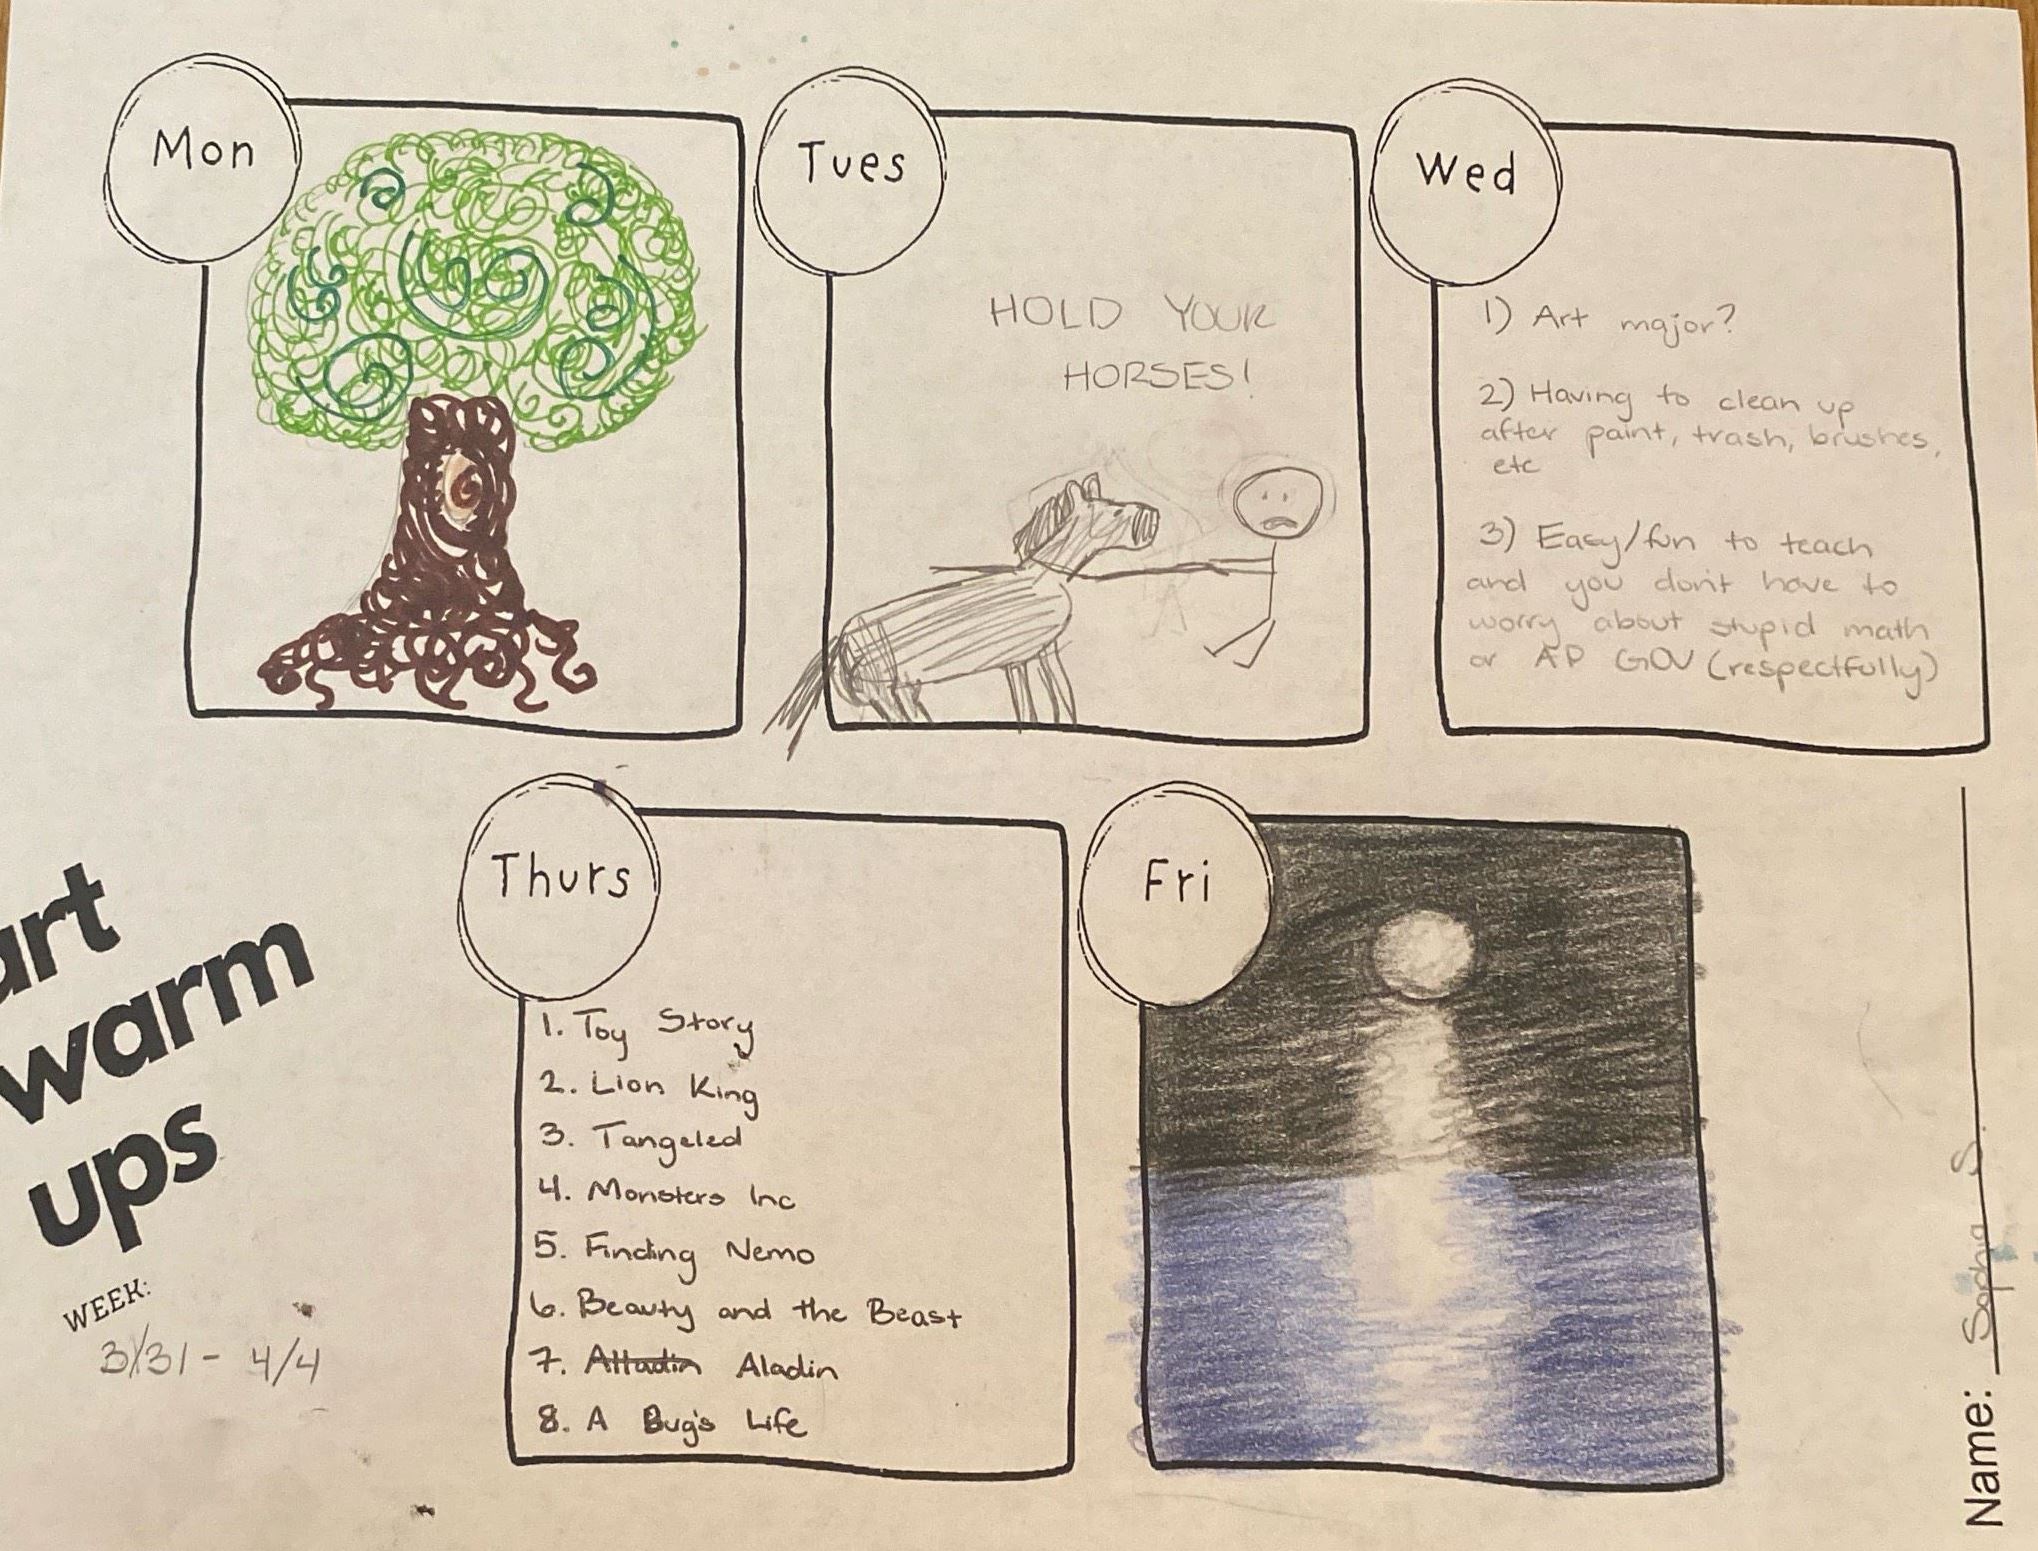 Mon
Tues
HOLD YOUR
HORSES!
Wed
1) Art major?
2) Having to clean up
after paint, trash, brushes,
etc
3) Easy/fun to teach
and you don't have to
worry about stupid math
or AP GOV (respectfully)
Thurs
1. Toy Story
2. Lion King
3. Tangeled
4. Monsters Inc
5. Finding Nemo
6. Beauty and the Beast
7. Alladin Aladin
8. A Bug's Life
Fri
art
warm
ups
WEEK:
3/31 - 4/4
Name: Sophia S.